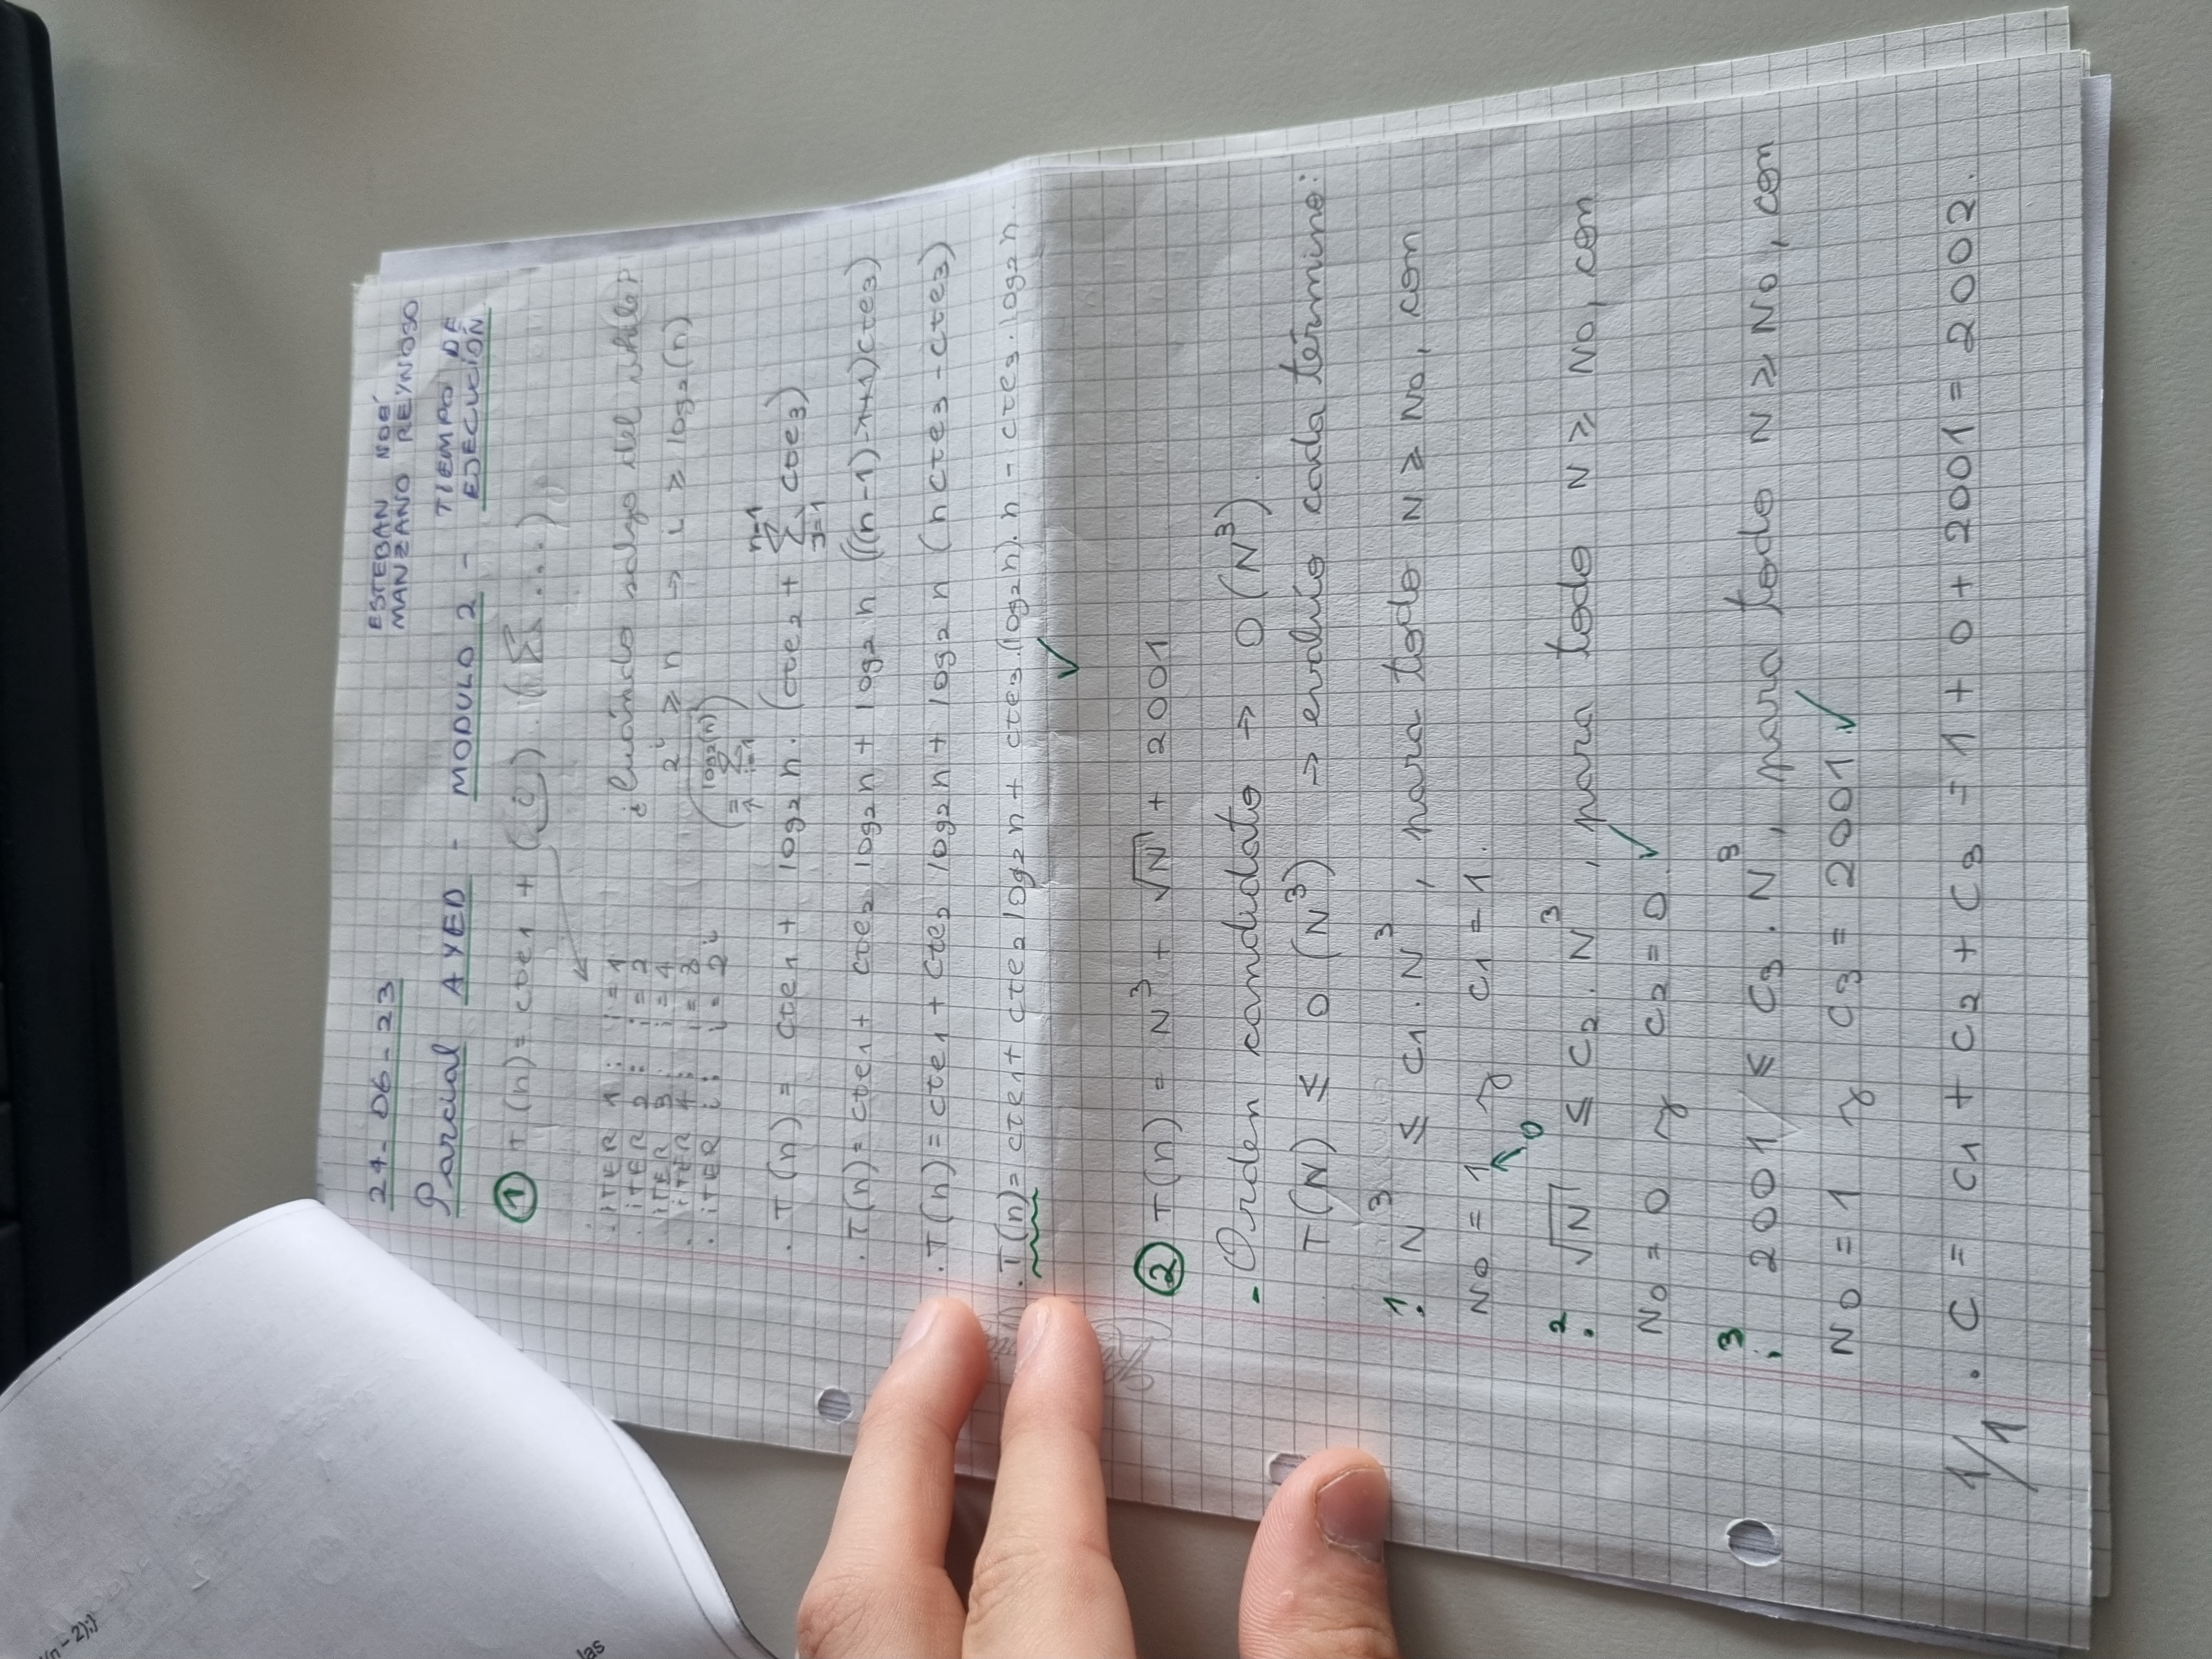 n-2);}
las
24-06-23
ESTEBAN NOÉ
MANZANO REYNOSO
Parcial AYED - MODULO 2 - TIEMPO DE
EJECUCIÓN
1 T(n) = cte1 + (¿) . (Σ...)
. ITER 1: j = 1
. ITER 2: j = 2
ITER 3: j = 4
. ITER 4: j = 8
. ITER i: j = 2^i
¿Cuándo salgo del while?
2^i ≥ n → i ≥ log2(n)
log2(n)
= Σ
i=1
. T(n) = cte1 + log2 n . (cte2 + Σ_{j=1}^{n-1} cte3)
. T(n) = cte1 + cte2 log2 n + log2 n (((n-1)-1+1)cte3)
. T(n) = cte1 + cte2 log2 n + log2 n (n cte3 - cte3)
. T(n) = cte1 + cte2 log2 n + cte3.(log2 n).n - cte3.log2 n.
✓
2 T(n) = N³ + √N + 2001
- Orden candidato → O(N³).
T(N) ≤ O(N³) → evalúo cada término:
1. N³ ≤ c1.N³, para todo N ≥ N0, con
N0 = 1 y c1 = 1.
0
2. √N ≤ c2.N³, para todo N ≥ N0, con
N0 = 0 y c2 = 0. ✓
3. 2001 ≤ c3.N³, para todo N ≥ N0, con
N0 = 1 y c3 = 2001. ✓
. C = c1 + c2 + c3 = 1 + 0 + 2001 = 2002.
1/1